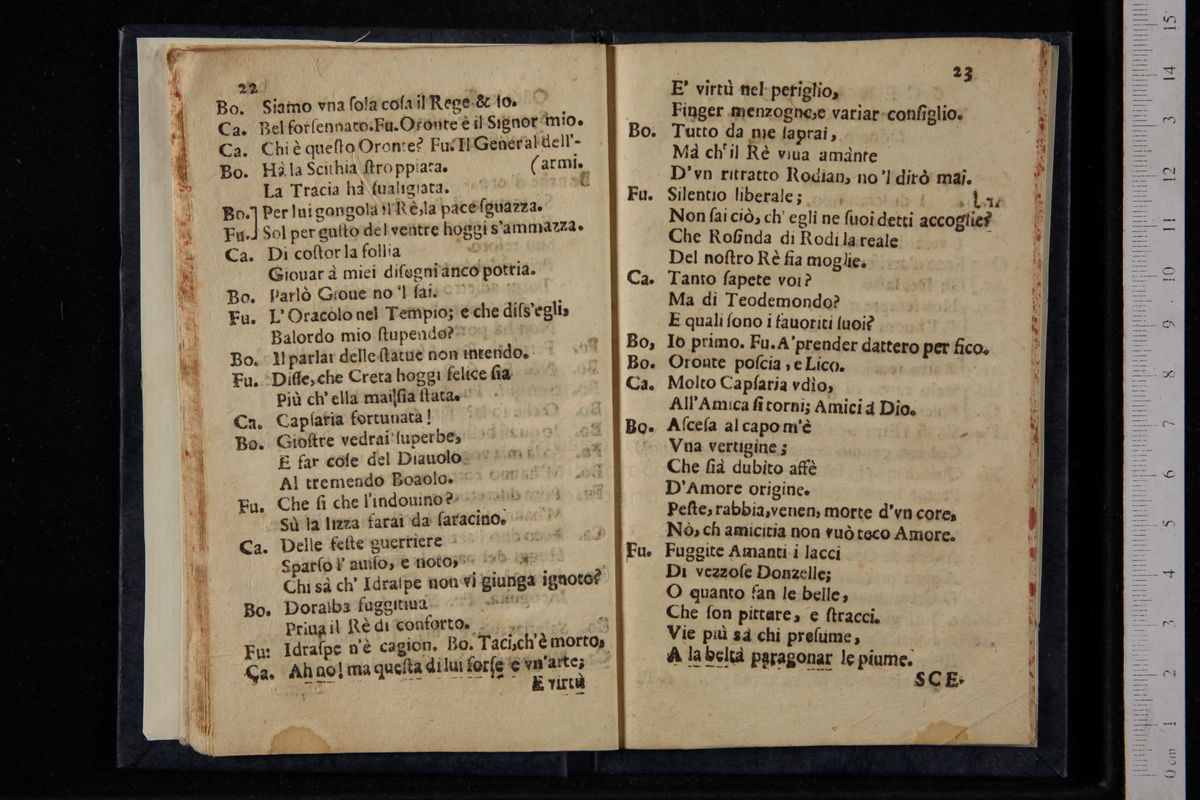 22
Bo. Siamo vna ſola coſa il Rege & Io.
Ca. Bel forſennato. Fu. Oronte è il Signor mio.
Ca. Chi è queſto Oronte? Fu. Il General dell'-
Bo. Hà la Scithia ſtroppiata. (armi.
La Tracia hà ſualigiata.
Bo.] Per lui gongola il Rè, la pace ſguazza.
Fu.] Sol per guſto del ventre hoggi s'ammazza.
Ca. Di coſtor la follia
Giouar à miei diſegni anco potria.
Bo. Parlò Gioue no 'l ſai.
Fu. L' Oracolo nel Tempio; e che diſs'egli,
Balordo mio ſtupendo?
Bo. Il parlar delle ſtatue non intendo.
Fu. Diſſe, che Creta hoggi felice ſia
Più ch' ella mai ſia ſtata.
Ca. Capſaria fortunata!
Bo. Gioſtre vedrai ſuperbe,
E far coſe del Diauolo
Al tremendo Boaolo.
Fu. Che ſi che l'indouino?
Sù la lizza farai da ſaracino.
Ca. Delle feſte guerriere
Sparſo l' auiſo, e noto,
Chi sà ch' Idraſpe non vi giunga ignoto?
Bo. Doralba fuggitiua
Priua il Rè di conforto.
Fu: Idraſpe n'è cagion. Bo. Taci, ch'è morto,
Ca. Ah no! ma queſta di lui forſe e vn'arte;
E virtù
23
E' virtù nel periglio,
Finger menzogne, e variar conſiglio.
Bo. Tutto da me ſaprai,
Mà ch' il Rè viua amànte
D'vn ritratto Rodian, no 'l dirò mai.
Fu. Silentio liberale;
Non ſai ciò, ch' egli ne ſuoi detti accoglie?
Che Roſinda di Rodi la reale
Del noſtro Rè ſia moglie.
Ca. Tanto ſapete voi?
Ma di Teodemondo?
E quali ſono i fauoriti ſuoi?
Bo, Io primo. Fu. A'prender dattero per fico.
Bo. Oronte poſcia, e Lico.
Ca. Molto Capſaria vdìo,
All'Amica ſi torni; Amici à Dio.
Bo. Aſceſa al capo m'è
Vna vertigine;
Che ſià dubito affè
D'Amore origine.
Peſte, rabbia, venen, morte d'vn core,
Nò, ch amicitia non vuò teco Amore.
Fu. Fuggite Amanti i lacci
Di vezzoſe Donzelle;
O quanto fan le belle,
Che ſon pitture, e ſtracci.
Vie più sà chi preſume,
A la beltà paragonar le piume.
SCE.